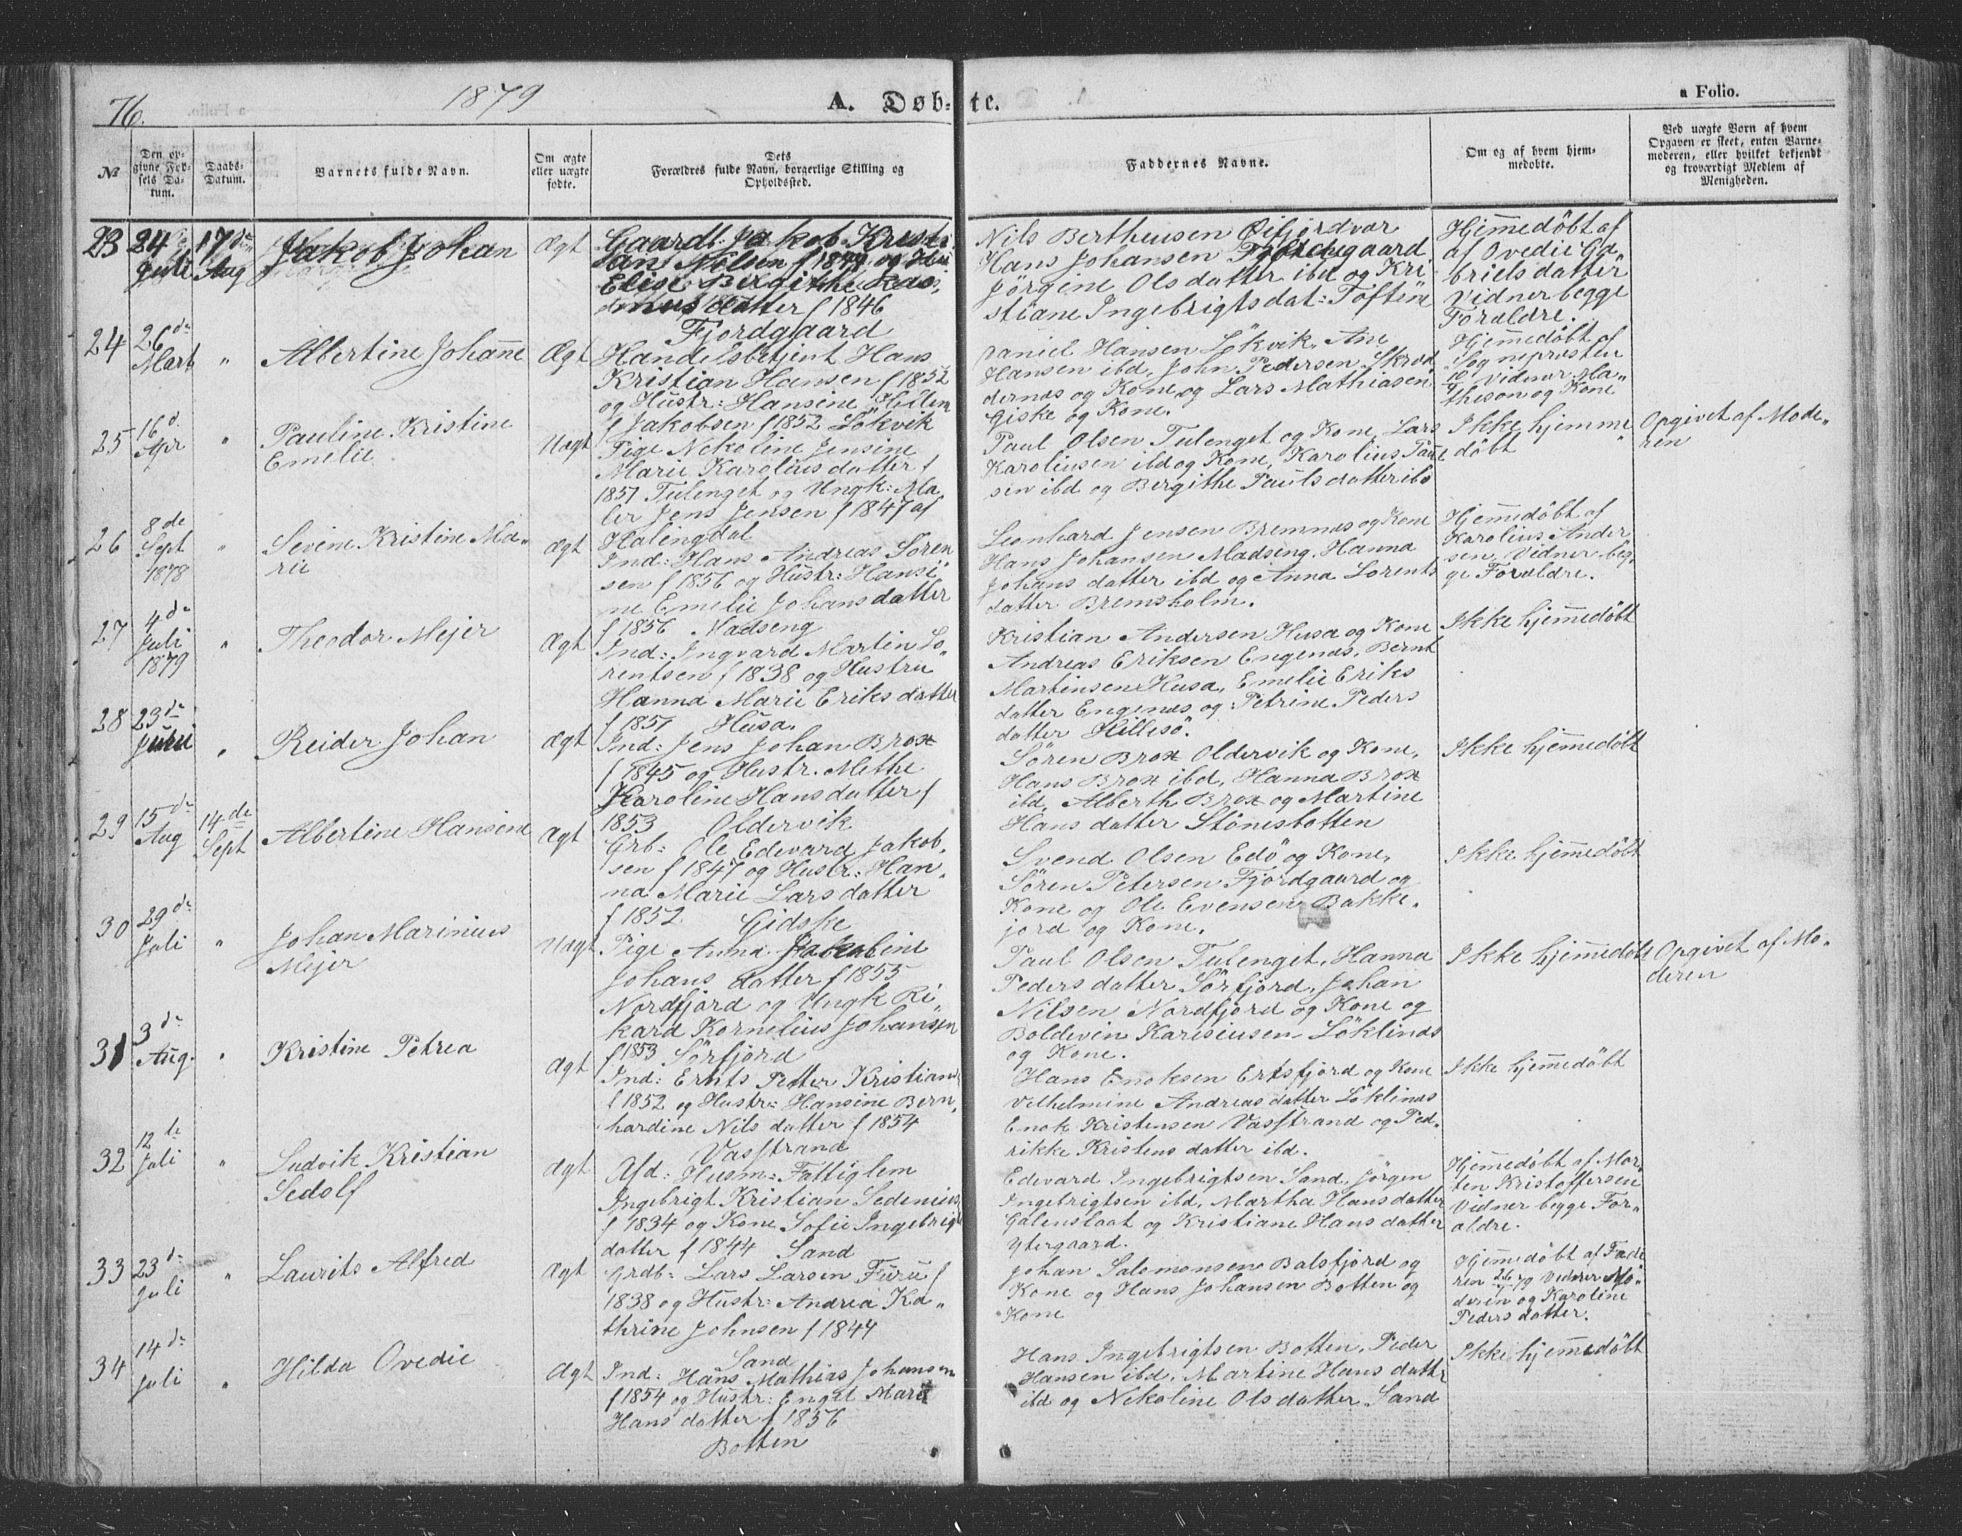 76.
1879
A. Døb-te.
a Folio.
No
Den opgivne Fødsels Datum.
Daabs-Datum.
Barnets fulde Navn.
Om ægte eller uægte fødte.
Dets Forældres fulde Navn, borgerlige Stilling og Opholdssted.
Faddernes Navne.
Om og af hvem hjemmedøbte.
Ved uægte Born af hvem Opgaven er skeet, enten Barnemoderen, eller hvilket bekjendt og troværdigt Medlem af Menigheden.
23
24 Juli
17de Aug
Jakob Johan
Ægt
Gaardb. Jakob Kristi
ans Nilsen f 1849 og Hu
Elise Bergithe Ras
musdatter f 1846
Fjordgaard
Nils Bertheusen Øifjordvær
Hans Johansen Fjordgaard
Jørgene Olsdatter ibd og Kri
stiane Ingebrigtsdat: Toften
Hjemmedøbt af
af Ovedie Ga
brielsdatter
Vidner begge
Forældre.
24
26de Mart
"
Albertine Johanne
Ægt
Handelsbetjent Hans
Kristian Hansen f 1852
og Hustr: Hansine Helene
Jakobsen f 1852 Lökvik
Daniel Hansen Lökvik, Ane
Hansen ibd, John Pedersen Skrod
dernes og Kone, og Lars Mathiasen
Giske og Kone.
Hjemmedøbt af
Sognepræsten
Vidner Ma-
theson og Kone
25
16d. Apr
"
Pauline Kristine
Emelie
Uægt
Pige Nekoline Jensine
Marie Karoliusdatter f
1857 Tulenget og Ungk: Ma
ler Jens Jensen f 1847 af
Halengdal
Paul Olsen Tulenget og Kone, Lars
Karoliusen ibd og Kone, Karolius Paul
sen ibd og Bergithe Paulsdatter ibd
Ikke hjemme
døbt
Opgivet af Mode-
ren
26
8de Sept 1878
"
Sevine Kristine Ma-
rie
Ægt
Ind: Hans Andreas Sören
sen f 1856 og Hustr: Hansi
ne Emelie Johansdatter
f 1856 Madseng
Leonhard Jensen Bremnes og Kone
Hans Johansen Madseng, Hanna
Johansdatter ibd og Anna Lorents
datter Bremsholm.
Hjemmedøbt af
Karolius Ander
sen. Vidner beg
ge Forældre.
27
4de Juli 1879
"
Theodor Mejer
Ægt
Ind: Ingvard Martin Lo-
rentsen f 1838 og Hustru
Hanna Marie Eriksdatter
f 1851 Husa.
Kristian Andersen Husa og Kone
Andreas Eriksen Engenes, Bernt
Martinsen Husa, Emelie Eriks
datter Engenes og Petrine Peders
datter Hillesö.
Ikke hjemmedøbt
28
23de Juni
"
Reider Johan
Ægt
Ind: Jens Johan Brox
f 1845 og Hustr. Methe
Karoline Hansdatter f
1853 Oldervik
Sören Brox Oldervik og Kone,
Hans Brox ibd, Hanna Brox
ibd, Alberth Brox og Martine
Hansdatter Stönisbotten
Ikke hjemmedøbt
29
15de Aug
14de Sept
Albertine Hansine
Ægt
Grb: Ole Edevard Jakob-
sen f 1847 og Hustr: Han-
na Marie Larsdatter
f 1852 Gidske
Svend Olsen Edö og Kone,
Sören Petersen Fjordgaard og
Kone og Ole Evensen Bakke-
jord og Kone.
Ikke hjemmedøbt
30
29de Juli
"
Johan Marinius
Mejer
Uægt
Pige Anna Jakobine
Johansdatter f 1855
Nordfjord og Ungk Ri-
kard Kornelius Johansen
f 1853 Sörfjord
Paul Olsen Tulenget, Hanna
Pedersdatter Sörfjord, Johan
Nilsen Nordfjord og Kone og
Boldevin Kariseusen Löklines
og Kone.
Ikke hjemmedøbt
Opgivet af Mo-
deren
31
3de Aug.
"
Kristine Petrea
Ægt
Ind: Ernts Petter Kristians
f 1852 og Hustr: Hansine Bern-
hardine Nilsdatter f 1854
Vasstrand
Hans Enoksen Ersfjord og Kone
Vilhelmine Andreasdatter Löklines
Enok Kristensen Vasstrand og Fred-
rikke Kristensdatter ibd.
Ikke hjemmedøbt
32
12te Juli
"
Ludvik Kristian
Sedolf
Ægt
Afd: Husm: Fattiglem
Ingebrigt Kristian Sedenius
f 1834 og Kone Sofie Ingebrigts
datter f 1844 Sand
Edevard Ingebrigtsen Sand, Jörgen
Ingebrigtsen ibd, Martha Hansdatter
Galenslaat og Kristiane Hansdatter
Ytergaard.
Hjemmedøbt af Mor-
ten Kristoffersen
Vidner begge For-
ældre.
33
23de Juli
"
Laurits Alfred
Ægt
Grdb: Lars Larsen Furu f
1838 og Hustr: Andrea Ka-
thrine Johnsen f 1844
Sand
Johan Salomonsen Balsfjord og
Kone og Hans Johansen Botten og
Kone
Hjemmedøbt af Fade
ren 26/7 79 Vidner Mo-
deren og Karoline
Pedersdatter.
34
14de Juli
"
Hilda Ovedie
Ægt
Ind: Hans Mathias Johansen
f 1854 og Hustr: Engel Marie
Hansdatter f 1856
Botten
Hans Ingebrigtsen Botten, Peder
Hansen ibd, Martine Hansdatter
ibd og Nekoline Olsdatter Sand
Ikke hjemmedøbt